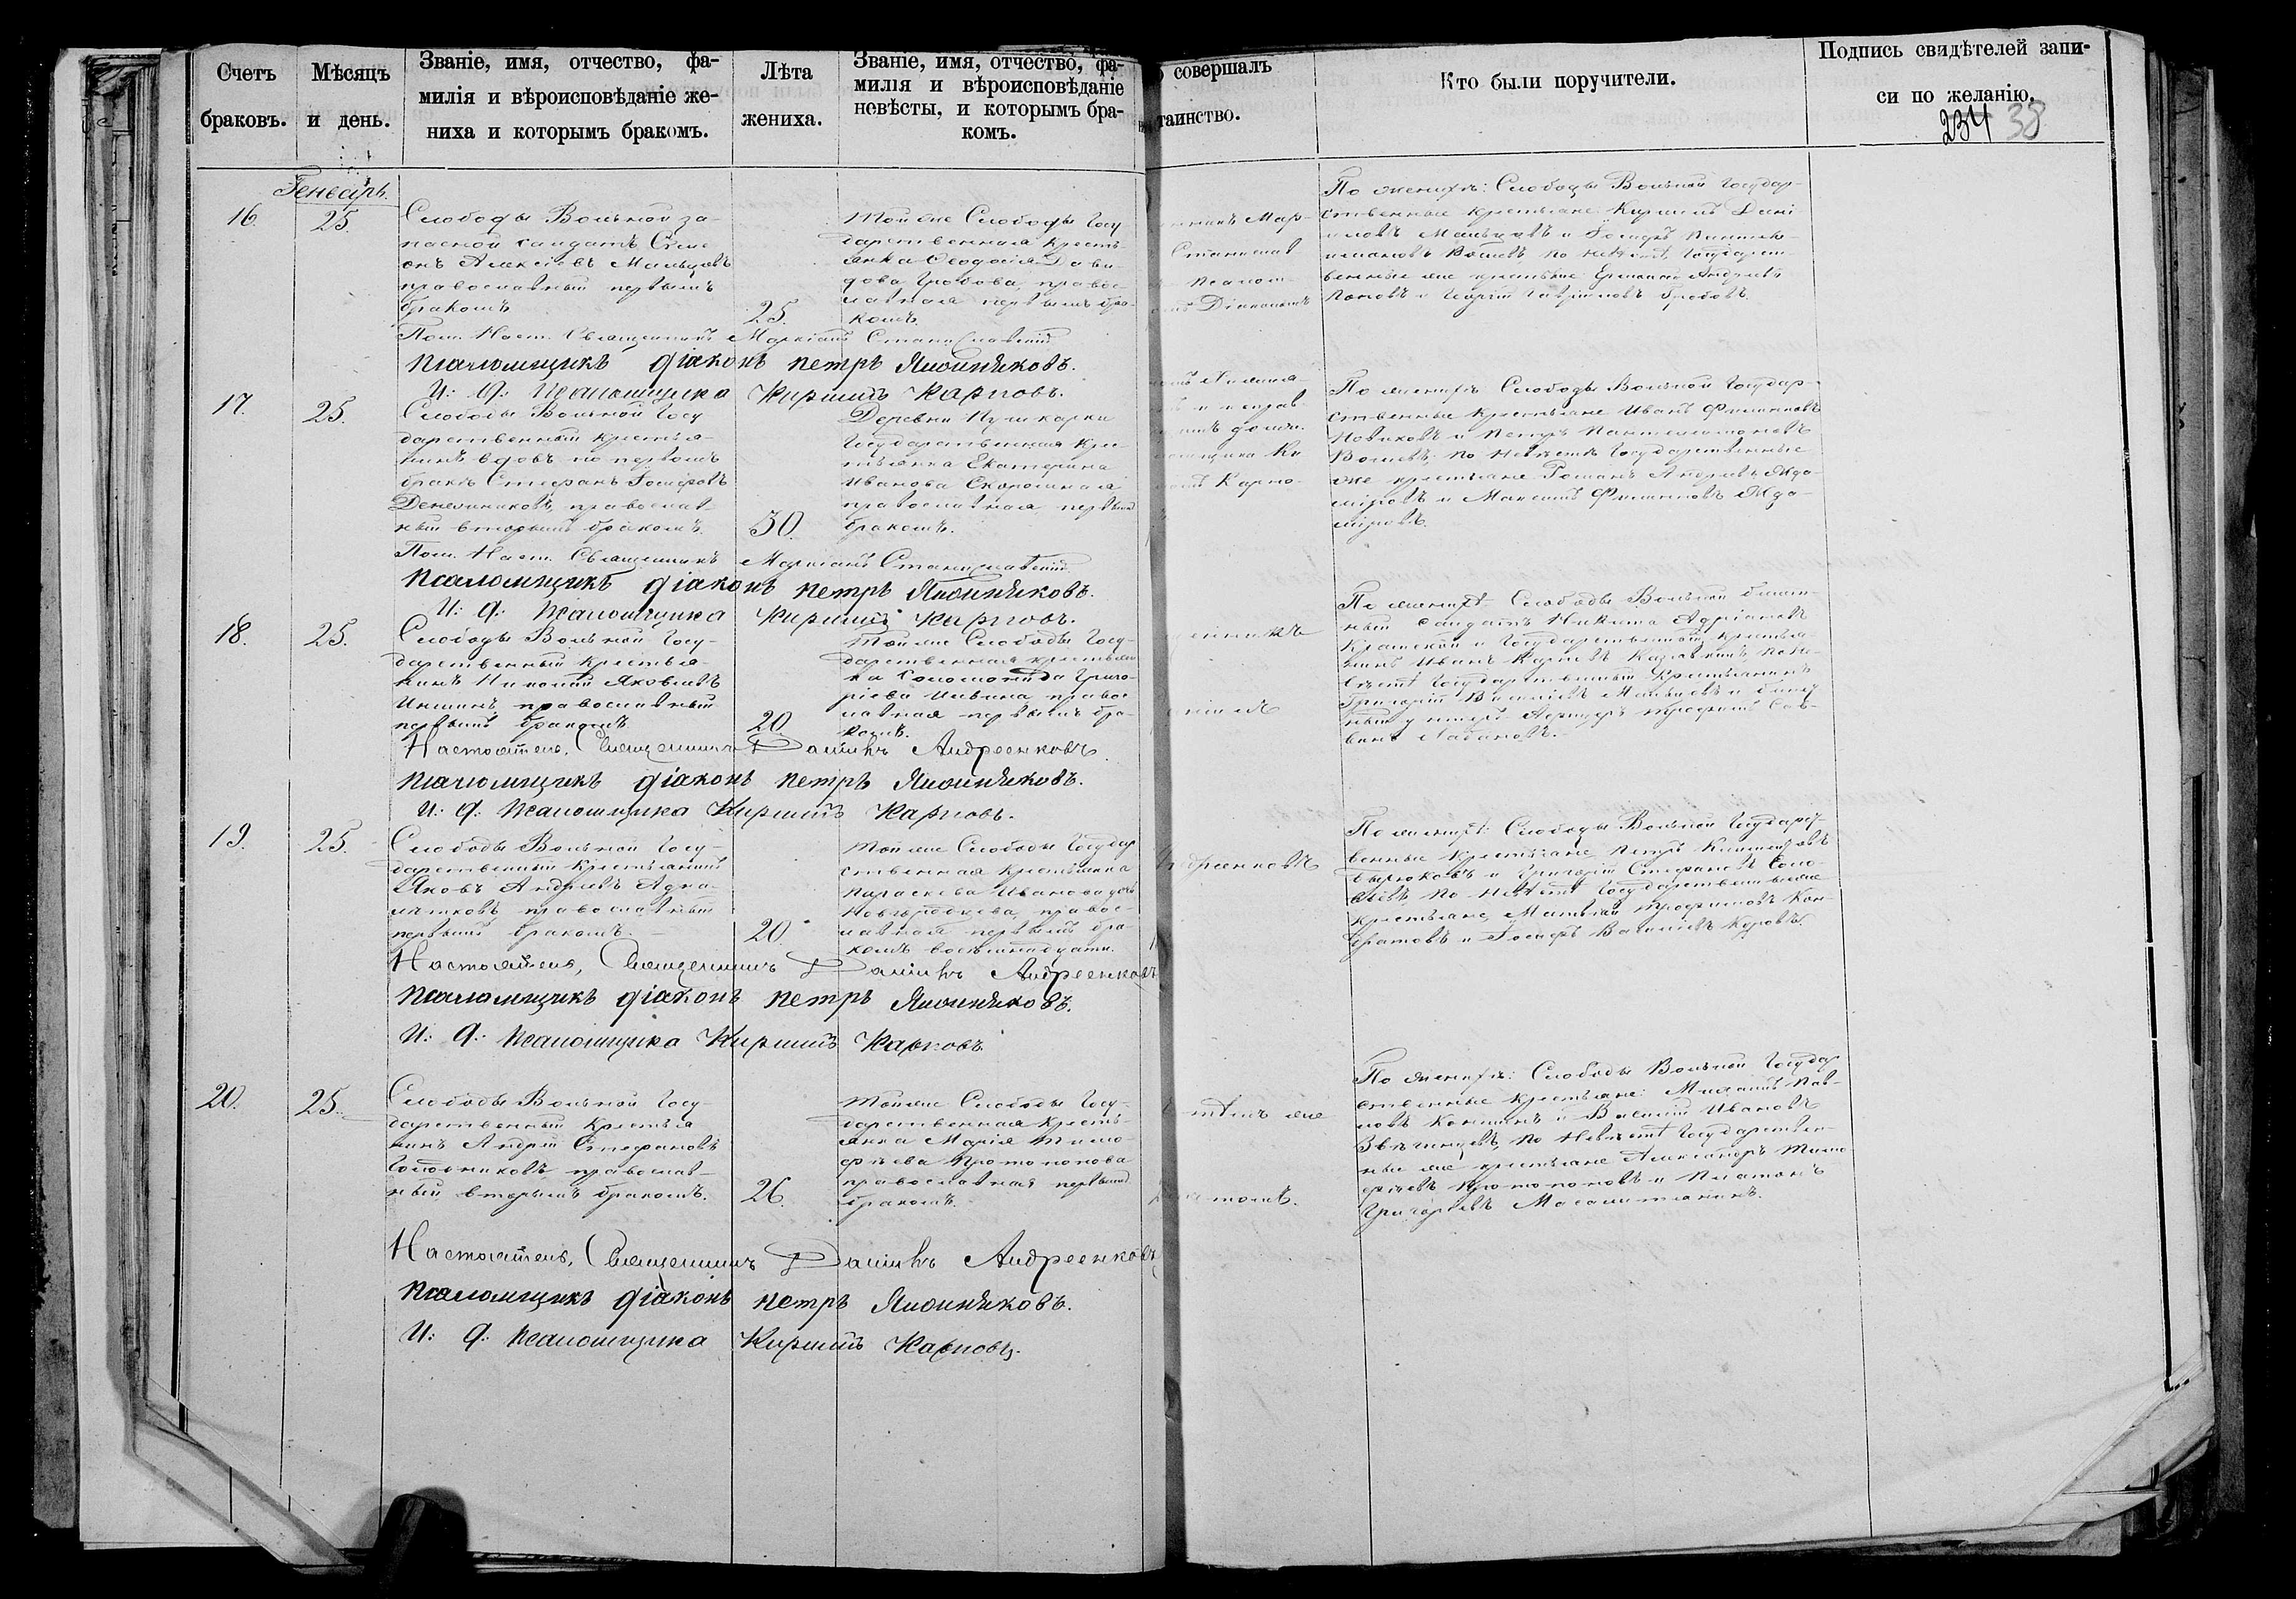 Счетъ
браковъ.
Мѣсяцъ
и день.
Званіе, имя, отчество, фа-
милія и вѣроисповѣданіе же-
ниха и которымъ бракомъ.
Лѣта
жениха.
Званіе, имя, отчество, фа-
милія и вѣроисповѣданіе
невѣсты, и которымъ бра-
комъ.
совершалъ
таинство.
Кто были поручители.
Подпись свидѣтелей запи-
си по желанію.
234 38
Генварь.
16.
25.
Слободы Вольной за-
пасной солдатъ Симе
онъ Алексѣевъ Мальцовъ
православный первымъ
бракомъ
25.
Той же Слободы Госу
дарственная кресть-
янка Ѳеодосія Дави-
дова Гробова, правос-
лавная первымъ бра-
комъ.
Мар-
Станислав
Псалом-
Діакономъ
По женихѣ: Слободы Вольной Государ-
ственные крестьяне Кириллъ Дани
иловъ Мальцовъ и Іосифъ Пантеле-
имоновъ по невѣстѣ, Государст-
венные же крестьяне Андреевъ
Поповъ и Георгій Гавриловъ Гробовъ.
Пом. Наст. Священникъ Маркіанъ Станиславскій
Псаломщикъ діаконъ Петръ
И: д: Псаломщика Кириллъ Карповъ.
17.
25.
Слободы Вольной Госу
дарственный крестья-
нинъ вдовъ по первомъ
бракѣ Стефанъ Іосифовъ
Денежниковъ, православ
ный вторымъ бракомъ.
30.
Деревни Пушкарки
Государственная кре-
стьянка Екатерина
Иванова
православная первымъ
бракомъ.
и исправ
Карпо-
По женихѣ Слободы Вольной Государ-
ственные крестьяне Иванъ Филипповъ
Новиковъ и Петръ Пантелеимоновъ
по невѣстѣ Государственные
же крестьяне Романъ Андреевъ
и Максимъ Филипповъ
Пом. Наст. Священникъ Маркіанъ Станиславскій
Псаломщикъ діаконъ Петръ
И: д: Псаломщика Кириллъ Карповъ.
18.
25.
Слободы Вольной Госу-
дарственный крестья-
нинъ Николай Яковлевъ
православный
первымъ бракомъ
20
Той же Слободы Госу-
дарственная крестьян
ка Соломонида Григо-
ріева Ильина, правос
лавная первымъ бра-
комъ.
По женихѣ: Слободы Вольной
солдатъ Никита Адріановъ
и Государственный крестья-
нинъ Иванъ по не-
вѣстѣ Государственный крестьянинъ
Григорій Васильевъ Мальцовъ и
Настоятель, Священникъ Даніилъ Андреенковъ.
Псаломщикъ діаконъ Петръ
И: д: Псаломщика Кириллъ Карповъ.
19.
25.
Слободы Вольной Госу-
дарственный крестьянинъ
Яковъ Андреевъ
православный
первымъ бракомъ. —
20.
Той же Слободы Государ
ственная крестьянка
Параскева Иванова дочь
правос-
лавная первымъ бра
комъ восемнадцати.
дреенковъ
По женихѣ: Слободы Вольной Государст-
венные крестьяне, Петръ
Бирюковъ и Григорій Стефановъ Соло-
вьевъ, по невѣстѣ Государственные же
крестьяне, Матвѣй Трофимовъ Кон-
дратовъ и Іосифъ Васильевъ
Настоятель, Священникъ Даніилъ Андреенковъ
Псаломщикъ діаконъ Петръ
И: д: Псаломщика Кириллъ Карповъ.
20.
25.
Слободы Вольной Госу-
дарственный крестья
нинъ Андрей Стефановъ
православ-
ный вторымъ бракомъ.
26.
Той же Слободы Госу-
дарственная кресть-
янка Марія Тимо-
фѣева Протопопова
православная первымъ
бракомъ.
По женихѣ: Слободы Вольной Государ
ственные крестьяне: Михаилъ Пав-
ловъ и Василій Ивановъ
Звягинцевъ, по невѣстѣ Государствен-
ные же крестьяне Александръ Тимо
фѣевъ Протопоповъ и Платонъ
Григорьевъ
Настоятель, Священникъ Даніилъ Андреенковъ
Псаломщикъ діаконъ Петръ
И: д: Псаломщика Кириллъ Карповъ.